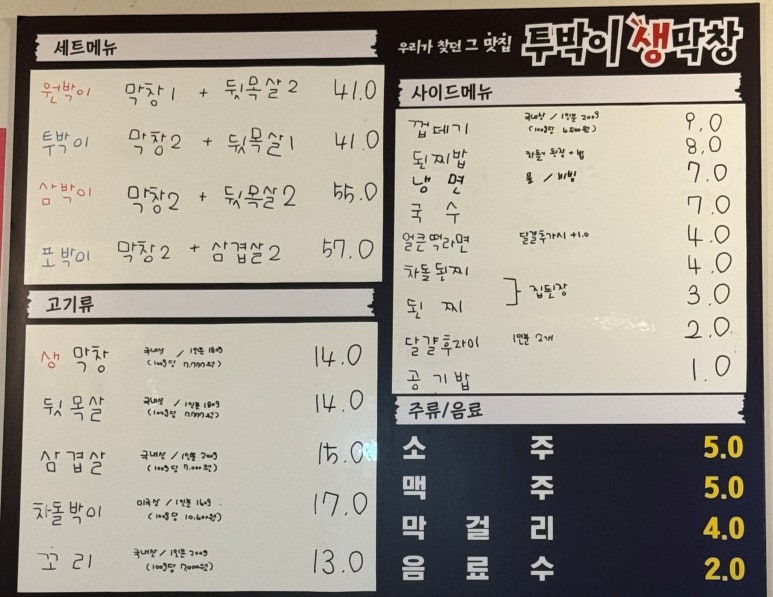 세트메뉴
원박이 막창1 + 뒷목살2 41.0
투박이 막창2 + 뒷목살1 41.0
삼박이 막창2 + 뒷목살2 55.0
포박이 막창2 + 삼겹살2 57.0
고기류
생막창 국내산 / 1인분 180g 14.0
(100g당 7.777원)
뒷목살 국내산 / 1인분 180g 14.0
(100g당 7.777원)
삼겹살 국내산 / 1인분 200g 15.0
(100g당 7.000원)
차돌박이 미국산 / 1인분 160g 17.0
(100g당 10.600원)
꼬리 국내산 / 1인분 200g 13.0
(100g당 7000원)
우리가 찾던 그 맛집 투박이 생막창
사이드메뉴
껍데기 국내산 / 1인분 200g 9.0
(100g당 4.500원)
된찌밥 차돌 된장 + 밥 8.0
냉면 물 / 비빔 7.0
국수 7.0
얼큰떡라면 달걀추가시 +1.0 4.0
차돌된찌 4.0
집된장
된찌 3.0
달걀후라이 1인분 2개 2.0
공기밥 1.0
주류/음료
소주 5.0
맥주 5.0
막걸리 4.0
음료수 2.0